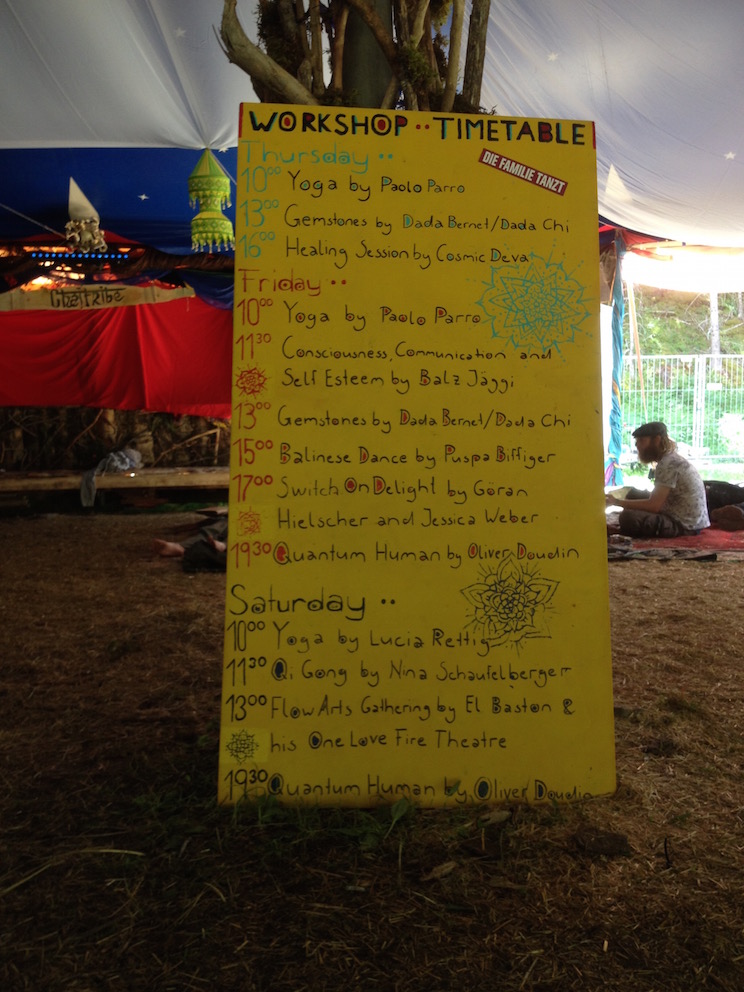 WORKSHOP·· TIMETABLE
Thursday··
DIE FAMILIE TANZT
10⁰⁰ Yoga by Paolo Parro
13⁰⁰ Gemstones by Dada Bernet/Dada Chi
16⁰⁰ Healing Session by Cosmic Deva
Friday··
10⁰⁰ Yoga by Paolo Parro
11³⁰ Consciousness, Communication and
Self Esteem by Balz Jäggi
13⁰⁰ Gemstones by Dada Bernet/Dada Chi
15⁰⁰ Balinese Dance by Puspa Biffiger
17⁰⁰ Switch On Delight by Göran
Hielscher and Jessica Weber
19³⁰ Quantum Human by Oliver Doudin
Saturday··
10⁰⁰ Yoga by Lucia Rettig
11³⁰ Qi Gong by Nina Schaufelberger
13⁰⁰ Flow Arts Gathering by El Baston &
his One Love Fire Theatre
19³⁰ Quantum Human by Oliver Doudin